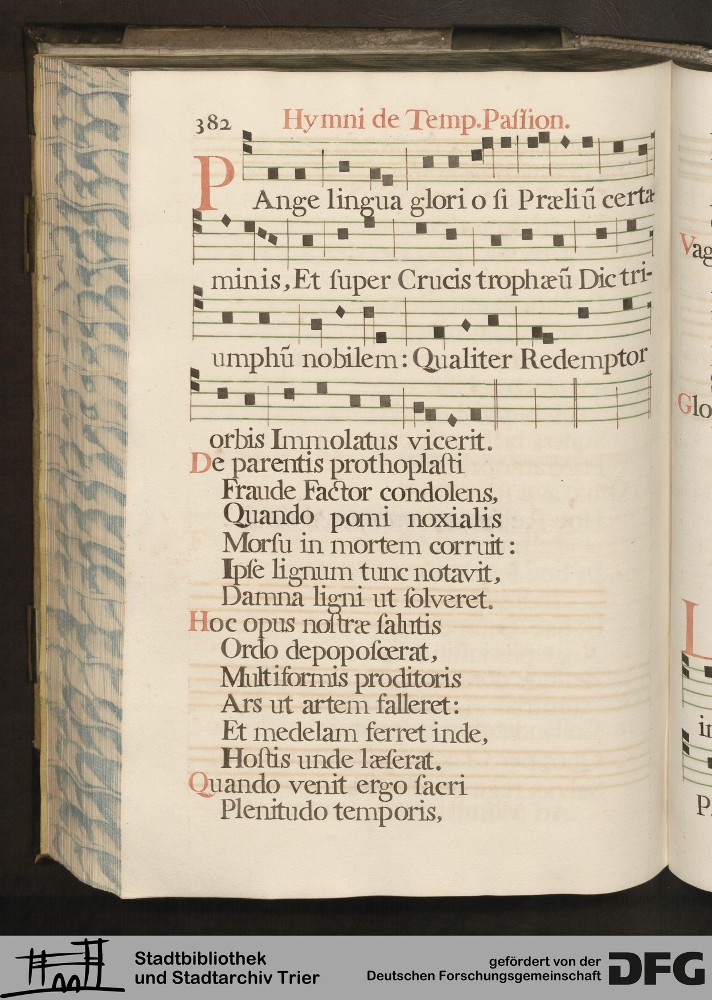 382 Hymni de Temp. Paſſion.
PAnge lingua glorio ſi Præliũ certa-
minis, Et ſuper Crucis trophæũ Dic tri-
umphũ nobilem: Qualiter Redemptor
orbis Immolatus vicerit.
De parentis prothoplaſti
Fraude Factor condolens,
Quando pomi noxialis
Morſu in mortem corruit:
Ipſe lignum tunc notavit,
Damna ligni ut ſolveret.
Hoc opus noſtræ ſalutis
Ordo depopoſcerat,
Multiformis proditoris
Ars ut artem falleret:
Et medelam ferret inde,
Hoſtis unde læſerat.
Quando venit ergo ſacri
Plenitudo temporis,
Vag
Glo
L
in
P
Stadtbibliothek
und Stadtarchiv Trier
gefördert von der
Deutschen Forschungsgemeinschaft
DFG